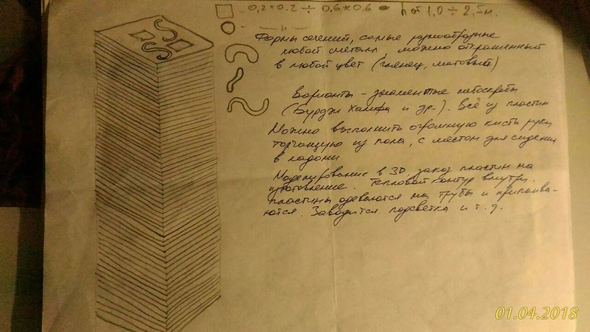 0.2×0.2 ÷ 0.6×0.6 h от 1,0 ÷ 2,5м.
Формы сечений, самые разнообразные
любой металл, можно окрашенный
в любой цвет (глянец, матовый)
Варианты - знаменитые небоскрёбы
(Бурдж Халифа и др.). Всё из пластин
Можно выполнить огромную кисть руки
торчащую из пола, с местом для сидения
в ладони
Моделирование в 3D, заказ пластин на
изготовление. Тепловой контур внутри.
пластины одеваются на трубы и припаива-
ются. Заводится подсветка и т.д.
01.04.2018